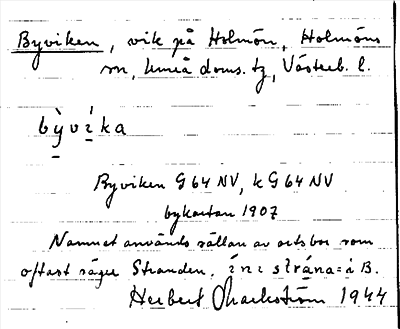 Byviken, vik på Holmön, Holmöns
sn, Umeå doms. tg, Västerb. l.
bỳvíka
Byviken G64 NV, k G64 NV
bykartan 1907
Namnet används sällan av ortsbor som
oftast säger Stranden. íni strána = i B.
Herbert Markström 1944